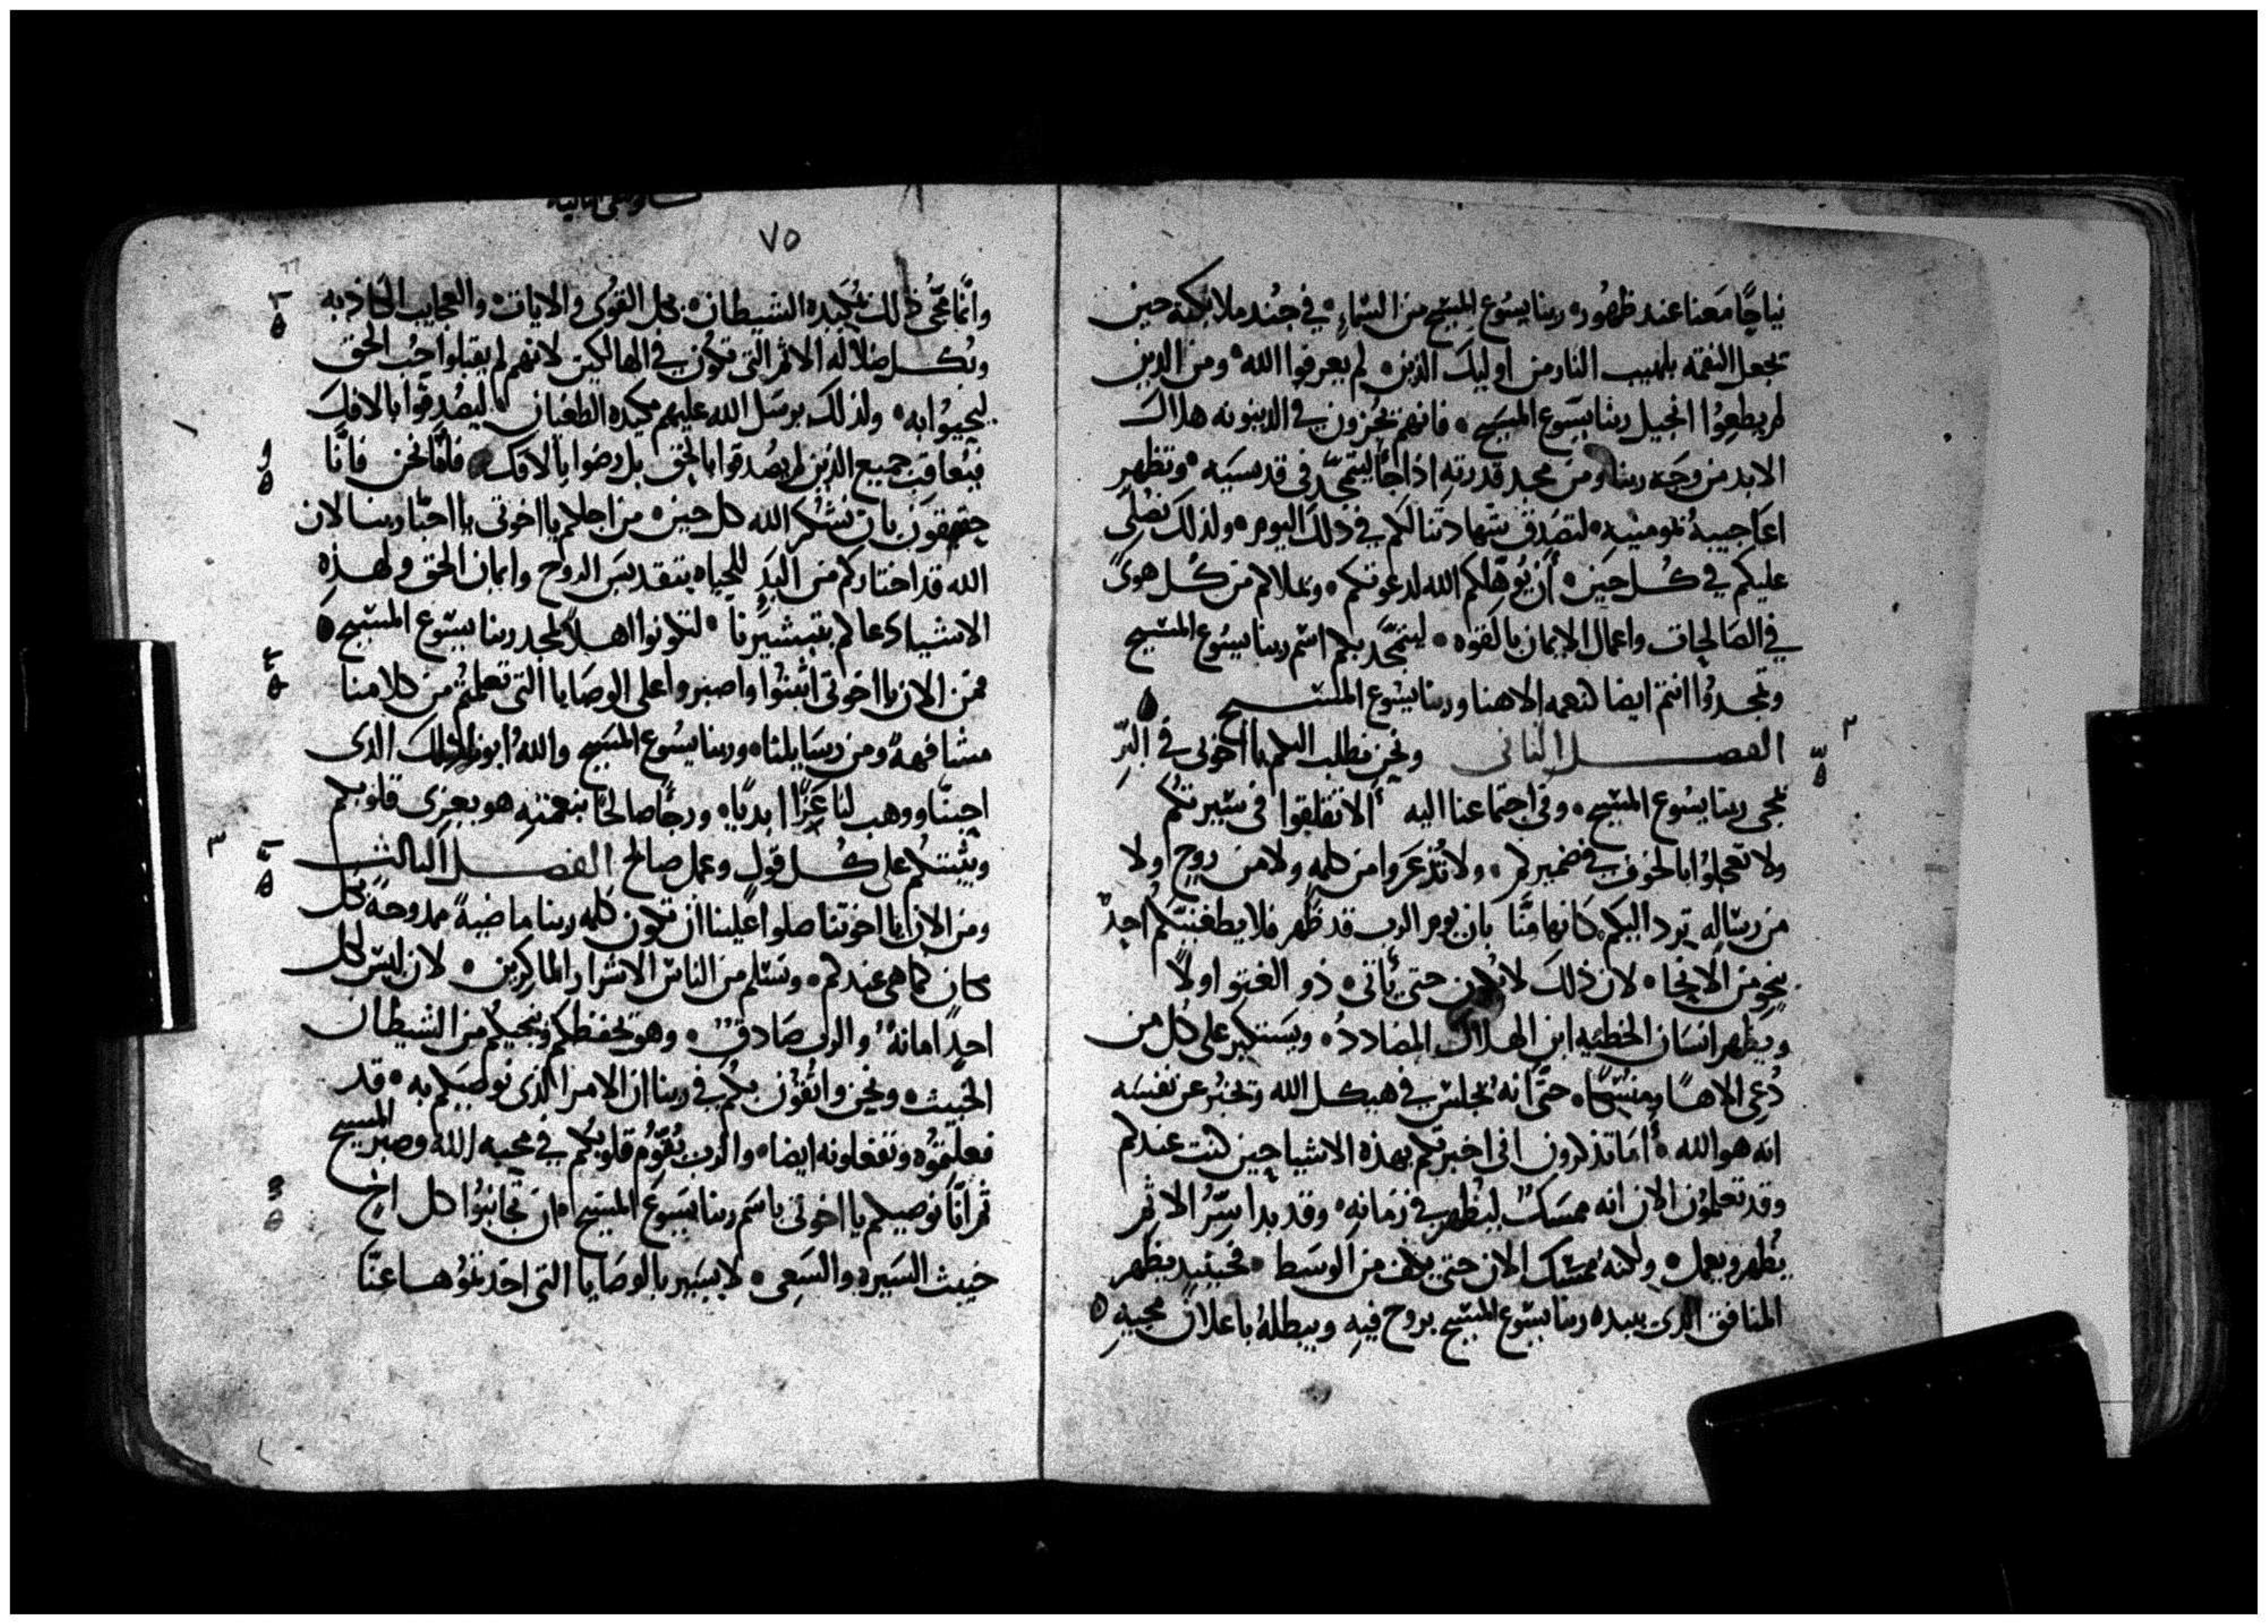 نياحًا معنا عند ظهور ربنا يسوع المسيح من السماء في جند ملايكته حين
تجعل النقمه بلهيب النار من اوليك الذين لم يعرفوا الله ومن الذين
لم يطعوا انجيل ربنا يسوع المسيح فانهم يجزون في الدينونه هلاك
الابد من وجه ربنا ومن مجد قدرته اذا جا ليتمجد في قديسيه وتظهر
اعاجيبه بمومنيه لتصدق شهادتنا لكم في ذلك اليوم ولذلك نصلى
عليكم في كل حين أن يوهلكم الله لدعوتكم ويملاكم من كل هوى
في الصالحات واعمال الايمان بالقوه ليتمجد بكم اسم ربنا يسوع المسيح
وتمجدوا انتم ايضا لنعمه الاهنا وربنا يسوع المسيح
٢ الفصل الثانى ونحن نطلب اليكم يا اخوتى في
مجى ربنا يسوع المسيح وفي اجتماعنا اليه ألا تقلقوا في
ولا تعجلوا بالخوف في ضميركم ولا تذعروا من كلمه ولا من روح ولا
من رساله ترد اليكم كانها منا بان يوم الرب قد ظهر فلا يطغينكم احد
بنحو من الانحا لان ذلك لا يكون حتى يأتى ذو العتو اولًا
ويظهر انسان الخطئيه ابن الهلاك المضادد ويستكبر على كل من
دعى الاهًا حتى انه يجلس في هيكل الله وتخبر عن نفسه
انه هو الله أما تذكرون انى اخبرتكم بهذه الاشيا حين كنت عندكم
وقد تعلمون الان انه ممسك ليظهر في زمانه وقد بدا سر الاثم
يظهر ويعمل ولكنه ممسك الان حتى من الوسط فحينيد يظهر
المنافق الذى يبيده ربنا يسوع المسيح بروح فيه ويبطله باعلان مجيه
٧٥
وانما مجى ذلك بمكيده الشيطان بكل القوى والايات والعجايب الكاذبه
وبكل ضلاله الاثم التى تكون في الهالكين لانهم لم يقبلوا حب الحق
ليحيوا به ولذلك يرسل الله عليهم مكيده الطغيان ليصدقوا بالافك
فيعاقب جميع الذين لم يصدقوا بالحق بل رضوا بالافك فاما نحن فانا
حقيقون بان نشكر الله كل حين من اجلكم يا اخوتى يا احبا ربنا لان
الله قد اختاركم من البدو للحياه بتقديس الروح وايمان الحق ولهذه
الاشياء دعاكم بتبشيرنا لتكونوا اهلًا لمجد ربنا يسوع المسيح
فمن الان يا اخوتى اثبتوا واصبروا على الوصايا التى تعلمتم من كلامنا
مشافهةً ومن رسايلنا وربنا يسوع المسيح والله ابونا ذلك الذى
احبنا ووهب لنا عزًا ابديًا ورجًا صالحًا بنعمته هو يعزى قلوبكم
٣ ويثبتكم على كل قول وعمل صالح الفصل الثالث
ومن الان يا اخوتنا صلوا علينا أن تكون كلمه ربنا ماضيةً ممدوحةً بكل
مكان كما هى عندكم ونسلم من الناس الاشرار الماكرين لان ليس لكل
احدٍ امانةٌ والرب صادق وهو يحفظكم وينجيكم من الشيطان
الخبيث ونحن واثقون بكم في ربنا ان الامر الذى نوصيكم به قد
فعلتموه وتفعلونه ايضا والرب يقوم قلوبكم في محبه الله وصبر المسيح
ثم انا نوصيكم يا اخوتى باسم ربنا يسوع المسيح ان تجانبوا كل اخ
خبيث السيره والسعى لا يسير بالوصايا التى اخذتموها عنا